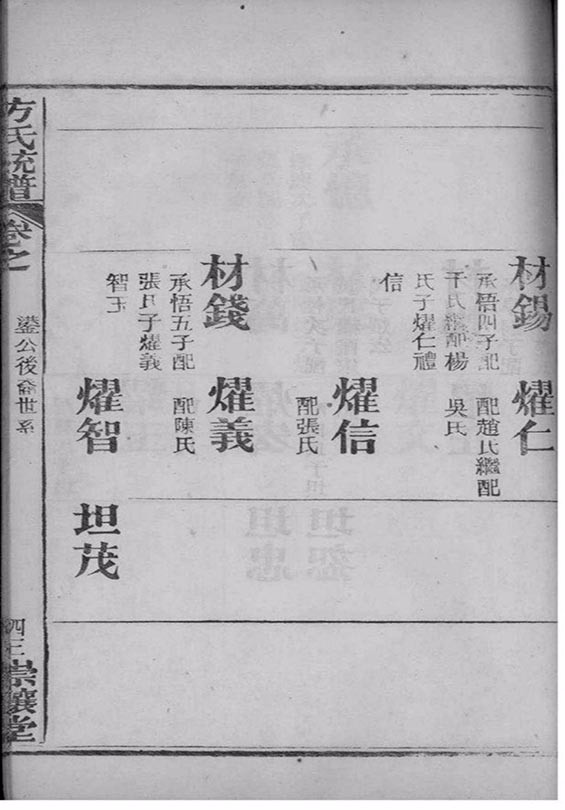 材錫
承悟四子配
干氏繼配楊
氏子燿仁禮
信
燿仁
配趙氏繼配
吳氏
燿信
配張氏
材錢
承悟五子配
張氏子燿義
智玉
燿義
配陳氏
燿智
坦茂
方氏統譜
卷之
鎏公後裔世系
四三
崇讓堂